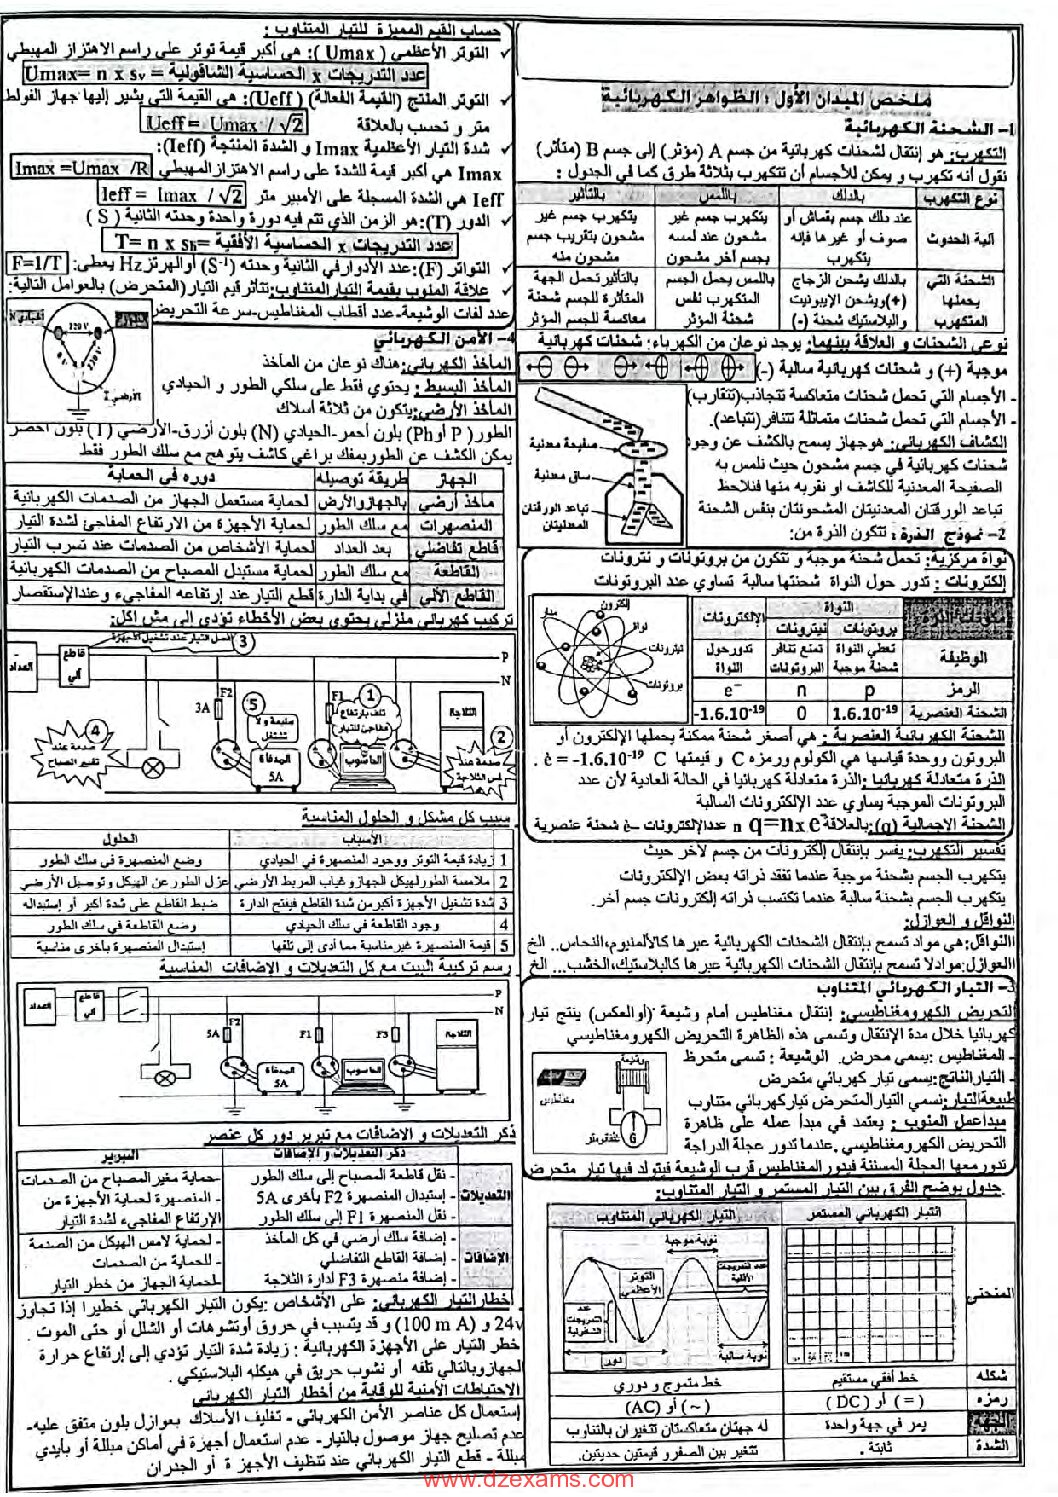 ملخص الميدان الأول : الظواهر الكهربائية
1- الشحنة الكهربائية
التكهرب: هو إنتقال لشحنات كهربائية من جسم A (مؤثر) إلى جسم B (متأثر)
نقول أنه تكهرب و يمكن للأجسام أن تتكهرب بثلاثة طرق كما في الجدول :
نوع التكهرب بالدلك باللمس بالتأثير
آلية الحدوث عند دلك جسم بقماش أو صوف أو غيرها فإنه يتكهرب يتكهرب جسم غير مشحون عند لمسه بجسم آخر مشحون يتكهرب جسم غير مشحون بتقريب جسم مشحون منه
الشحنة التي يحملها المتكهرب بالدلك يشحن الزجاج (+)ويشحن الإيبونيت والبلاستيك شحنة (-) باللمس يحمل الجسم المتكهرب نفس شحنة المؤثر بالتأثير تحمل الجهة المتأثرة للجسم شحنة معاكسة للجسم المؤثر
نوعي الشحنات و العلاقة بينهما: يوجد نوعان من الكهرباء: شحنات كهربائية
موجبة (+) و شحنات كهربائية سالبة (-)
- الأجسام التي تحمل شحنات متعاكسة تتجاذب(تتقارب)
- الأجسام التي تحمل شحنات متماثلة تتنافر(تتباعد).
الكشاف الكهربائي: هوجهاز يسمح بالكشف عن وجود
شحنات كهربائية في جسم مشحون حيث نلمس به
الصفيحة المعدنية للكاشف او نقربه منها فنلاحظ
تباعد الورقتان المعدنيتان المشحونتان بنفس الشحنة
صفيحة معدنية
ساق معدنية
تباعد الورقتان
المعدنيتان
2- نموذج الذرة : تتكون الذرة من:
نواة مركزية: تحمل شحنة موجبة و تتكون من بروتونات و نترونات
إلكترونات : تدور حول النواة شحنتها سالبة تساوي عدد البروتونات
إلكترون
مدار
نواة
نيترونات
بروتونات
مكونات الذرة النواة الإلكترونات
بروتونات نيترونات
الوظيفة تعطي النواة شحنة موجبة تمنع تنافر البروتونات تدورحول النواة
الرمز p n e⁻
الشحنة العنصرية 1.6.10⁻¹⁹ 0 -1.6.10⁻¹⁹
الشحنة الكهربائية العنصرية : هي أصغر شحنة ممكنة يحملها الإلكترون أو
البروتون ووحدة قياسها هي الكولوم ورمزه C و قيمتها è = -1.6.10⁻¹⁹ C .
الذرة متعادلة كهربائيا :الذرة متعادلة كهربائيا في الحالة العادية لأن عدد
البروتونات الموجبة يساوي عدد الإلكترونات السالبة
الشحنة الاجمالية (q):بالعلاقة q=n x e⁻ n عددالإلكترونات e⁻ شحنة عنصرية
تفسير التكهرب: يفسر بإنتقال إلكترونات من جسم لآخر حيث
يتكهرب الجسم بشحنة موجبة عندما تفقد ذراته بعض الإلكترونات
يتكهرب الجسم بشحنة سالبة عندما تكتسب ذراته إلكترونات جسم آخر.
النواقل و العوازل:
النواقل:هي مواد تسمح بإنتقال الشحنات الكهربائية عبرها كالألمنيوم،النحاس.. الخ
العوازل:موادلا تسمح بإنتقال الشحنات الكهربائية عبرها كالبلاستيك،الخشب... الخ
3- التيار الكهربائي المتناوب
التحريض الكهرومغناطيسي: إنتقال مغناطيس أمام وشيعة (أوالعكس) ينتج تيار
كهربائيا خلال مدة الإنتقال وتسمى هذه الظاهرة التحريض الكهرومغناطيسي
- المغناطيس :يسمى محرض. الوشيعة : تسمى متحرظ
- التيارالناتج:يسمى تيار كهربائي متحرض
طبيعةالتيار:نسمي التيارالمتحرض تياركهربائي متناوب
مبداعمل المنوب : يعتمد في مبدأ عمله على ظاهرة
التحريض الكهرومغناطيسي .عندما تدور عجلة الدراجة
تدورمعها العجلة المسننة فيدور المغناطيس قرب الوشيعة فيتولد فيها تيار متحرض
وشيعة
مغناطيس
G
جدول يوضح الفرق بين التيار المستمر و التيار المتناوب:
التيار الكهربائي المستمر التيار الكهربائي المتناوب
المنحنى
نوبة موجبة
التوتر الأعظمي
عدد التدريجات الأفقية
عدد التدريجات الشاقولية
نوبة سالبة
دور
شكله خط أفقي مستقيم خط متموج و دوري
رمزه ( = ) أو ( DC ) (~) أو (AC)
الجهة يمر في جهة واحدة له جهتان متعاكستان تتغيران بالتناوب
الشدة ثابتة . تتغير بين الصفر و قيمتين حديتين.
حساب القيم المميزة للتيار المتناوب :
✓ التوتر الأعظمي ( Umax ): هي أكبر قيمة توتر على راسم الاهتزاز المهبطي
Umax= n x sv = عدد التدريجات x الحساسية الشاقولية
✓ التوتر المنتج (القيمة الفعالة) (Ueff): هي القيمة التي يشير إليها جهاز الفولط
متر و تحسب بالعلاقة Ueff = Umax / √2
✓ شدة التيار الأعظمية Imax و الشدة المنتجة (Ieff):
Imax هي أكبر قيمة للشدة على راسم الاهتزازالمهبطي Imax =Umax /R
Ieff هي الشدة المسجلة على الأمبير متر Ieff = Imax / √2
✓ الدور (T):هو الزمن الذي تتم فيه دورة واحدة وحدته الثانية ( S )
T= n x sh= عدد التدريجات x الحساسية الأفقية
✓ التواتر (F):عدد الأدوارفي الثانية وحدته (S⁻¹) أوالهرتزHz يعطى: F=1/T
✓ علاقة المنوب بقيمة التيارالمتناوب:تتأثرقيم التيار(المتحرض) بالعوامل التالية:
عدد لفات الوشيعة-عدد أقطاب المغناطيس-سرعة التحريض
220V
0 V
220V
4- الأمن الكهربائي
المأخذ الكهربائي:هناك نوعان من المآخذ
المأخذ البسيط : يحتوي فقط على سلكي الطور و الحيادي
المأخذ الأرضي:يتكون من ثلاثة أسلاك
الطور( P أوPh) بلون أحمر-الحيادي (N) بلون أزرق-الأرضي (T) بلون أخضر
يمكن الكشف عن الطوربمفك براغي كاشف يتوهج مع سلك الطور فقط
الجهاز طريقة توصيله دوره في الحماية
مأخذ أرضي بالجهازوالأرض لحماية مستعمل الجهاز من الصدمات الكهربائية
المنصهرات مع سلك الطور لحماية الأجهزة من الارتفاع المفاجئ لشدة التيار
قاطع تفاضلي بعد العداد لحماية الأشخاص من الصدمات عند تسرب التيار
القاطعة مع سلك الطور لحماية مستبدل المصباح من الصدمات الكهربائية
القاطع الآلي في بداية الدارة قطع التيار عند إرتفاعه المفاجيء وعندالإستقصار
تركيب كهربائي منزلي يحتوي بعض الأخطاء تؤدي إلى مشاكل:
العداد
قاطع آلي
3
P
N
F2
3A
F1
1
2
4
5
المدفأة 5A
الحاسوب
الثلاجة
صدمة عند تغيير المصباح
صدمة عند لمس الثلاجة
سبب كل مشكل و الحلول المناسبة
الأسباب الحلول
1 زيادة قيمة التوتر ووجود المنصهرة في الحيادي وضع المنصهرة في سلك الطور
2 ملامسة الطورلهيكل الجهازو غياب المربط الأرضي عزل الطور عن الهيكل وتوصيل الأرضي
3 شدة تشغيل الأجهزة أكبرمن شدة القاطع فيفتح الدارة ضبط القاطع على شدة أكبر أو إستبداله
4 وجود القاطعة في سلك الحيادي وضع القاطعة في سلك الطور
5 قيمة المنصهرة غيرمناسبة مما أدى إلى تلفها إستبدال المنصهرة بأخرى مناسبة
رسم تركيبة البيت مع كل التعديلات و الإضافات المناسبة
العداد
قاطع آلي
P
N
F2
5A
F1
F3
المدفأة 5A
الحاسوب
الثلاجة
ذكر التعديلات و الاضافات مع تبرير دور كل عنصر
ذكر التعديلات و الإضافات التبرير
التعديلات - نقل قاطعة المصباح إلى سلك الطور -حماية مغير المصباح من الصدمات
- إستبدال المنصهرة F2 بأخرى 5A - المنصهرة لحماية الأجهزة من
- نقل المنصهرة F1 إلى سلك الطور الإرتفاع المفاجيء لشدة التيار
الإضافات - إضافة سلك أرضي في كل المآخذ - لحماية لامس الهيكل من الصدمة
- إضافة القاطع التفاضلي - للحماية من الصدمات
- إضافة منصهرة F3 لدارة الثلاجة -لحماية الجهاز من خطر التيار
أخطارالتيار الكهربائي: على الأشخاص :يكون التيار الكهربائي خطيرا إذا تجاوز
24v و (100 m A) و قد يتسبب في حروق أوتشوهات أو الشلل أو حتى الموت .
خطر التيار على الأجهزة الكهربائية : زيادة شدة التيار تؤدي إلى إرتفاع حرارة
الجهازوبالتالي تلفه أو نشوب حريق في هيكله البلاستيكي .
الاحتياطات الأمنية للوقاية من أخطار التيار الكهربائي
إستعمال كل عناصر الأمن الكهربائي - تغليف الأسلاك بعوازل بلون متفق عليه-
عدم تصليح جهاز موصول بالتيار- عدم استعمال أجهزة في أماكن مبللة أو بأيدي
مبللة - قطع التيار الكهربائي عند تنظيف الأجهزة أو الجدران
www.dzexams.com